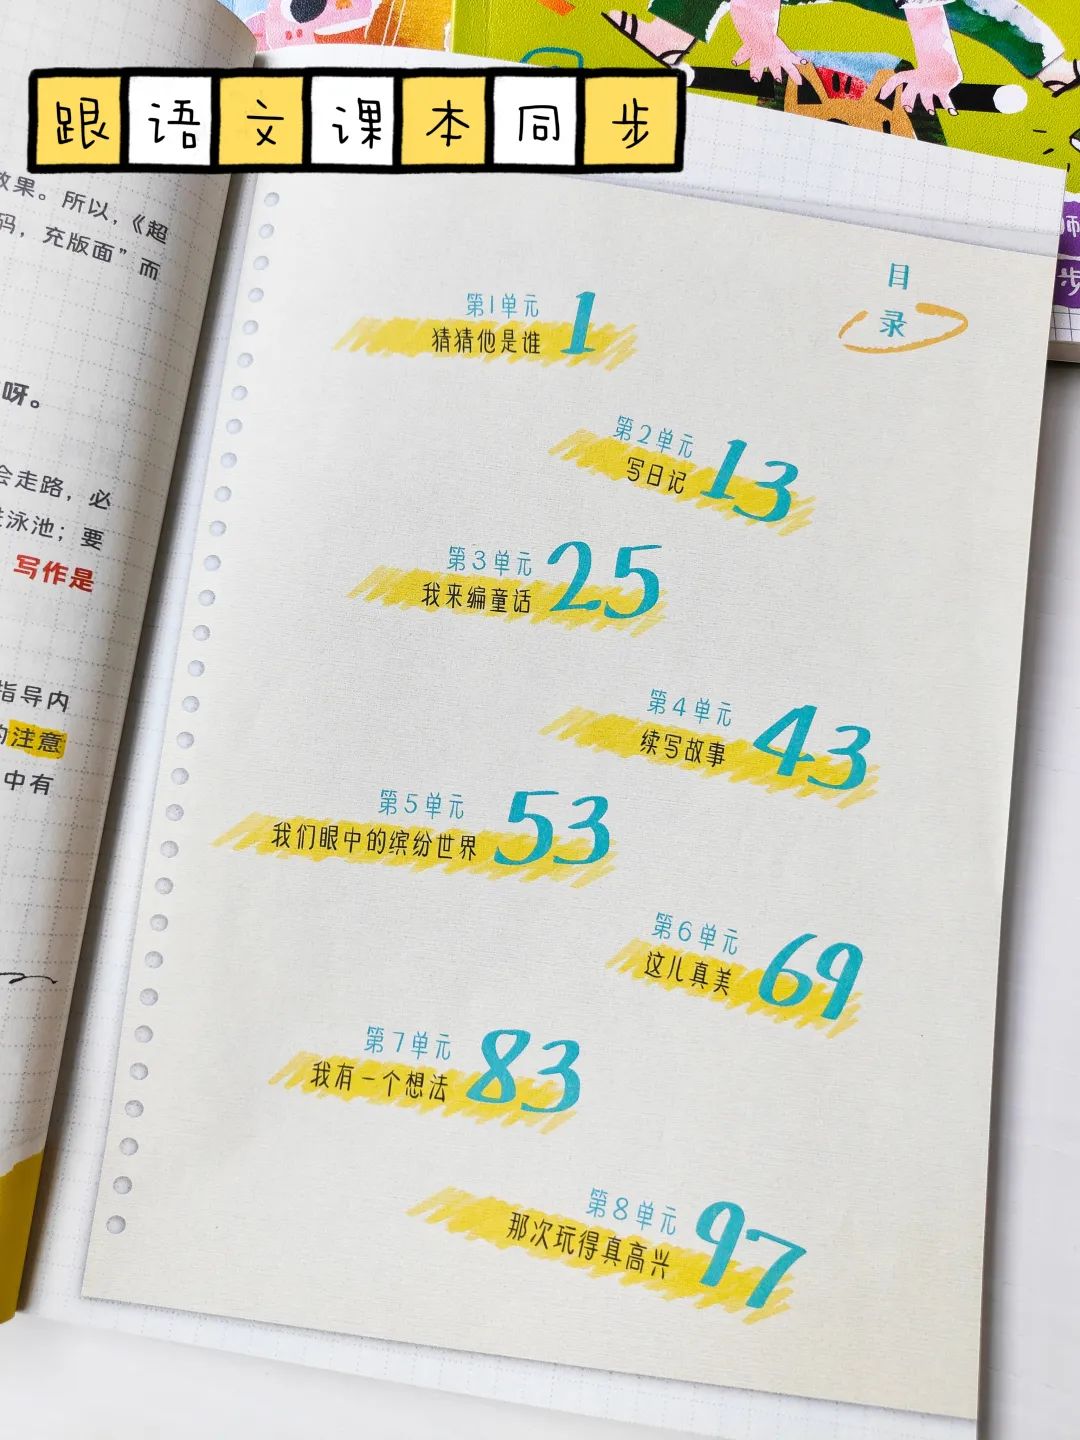 跟语文课本同步
效果。所以，《超
码，充版面”而
呀。
会走路，必
泳池；要
写作是
指导内
的注意
中有
目
录
第1单元
猜猜他是谁 1
第2单元
写日记 13
第3单元
我来编童话 25
第4单元
续写故事 43
第5单元
我们眼中的缤纷世界 53
第6单元
这儿真美 69
第7单元
我有一个想法 83
第8单元
那次玩得真高兴 97
步